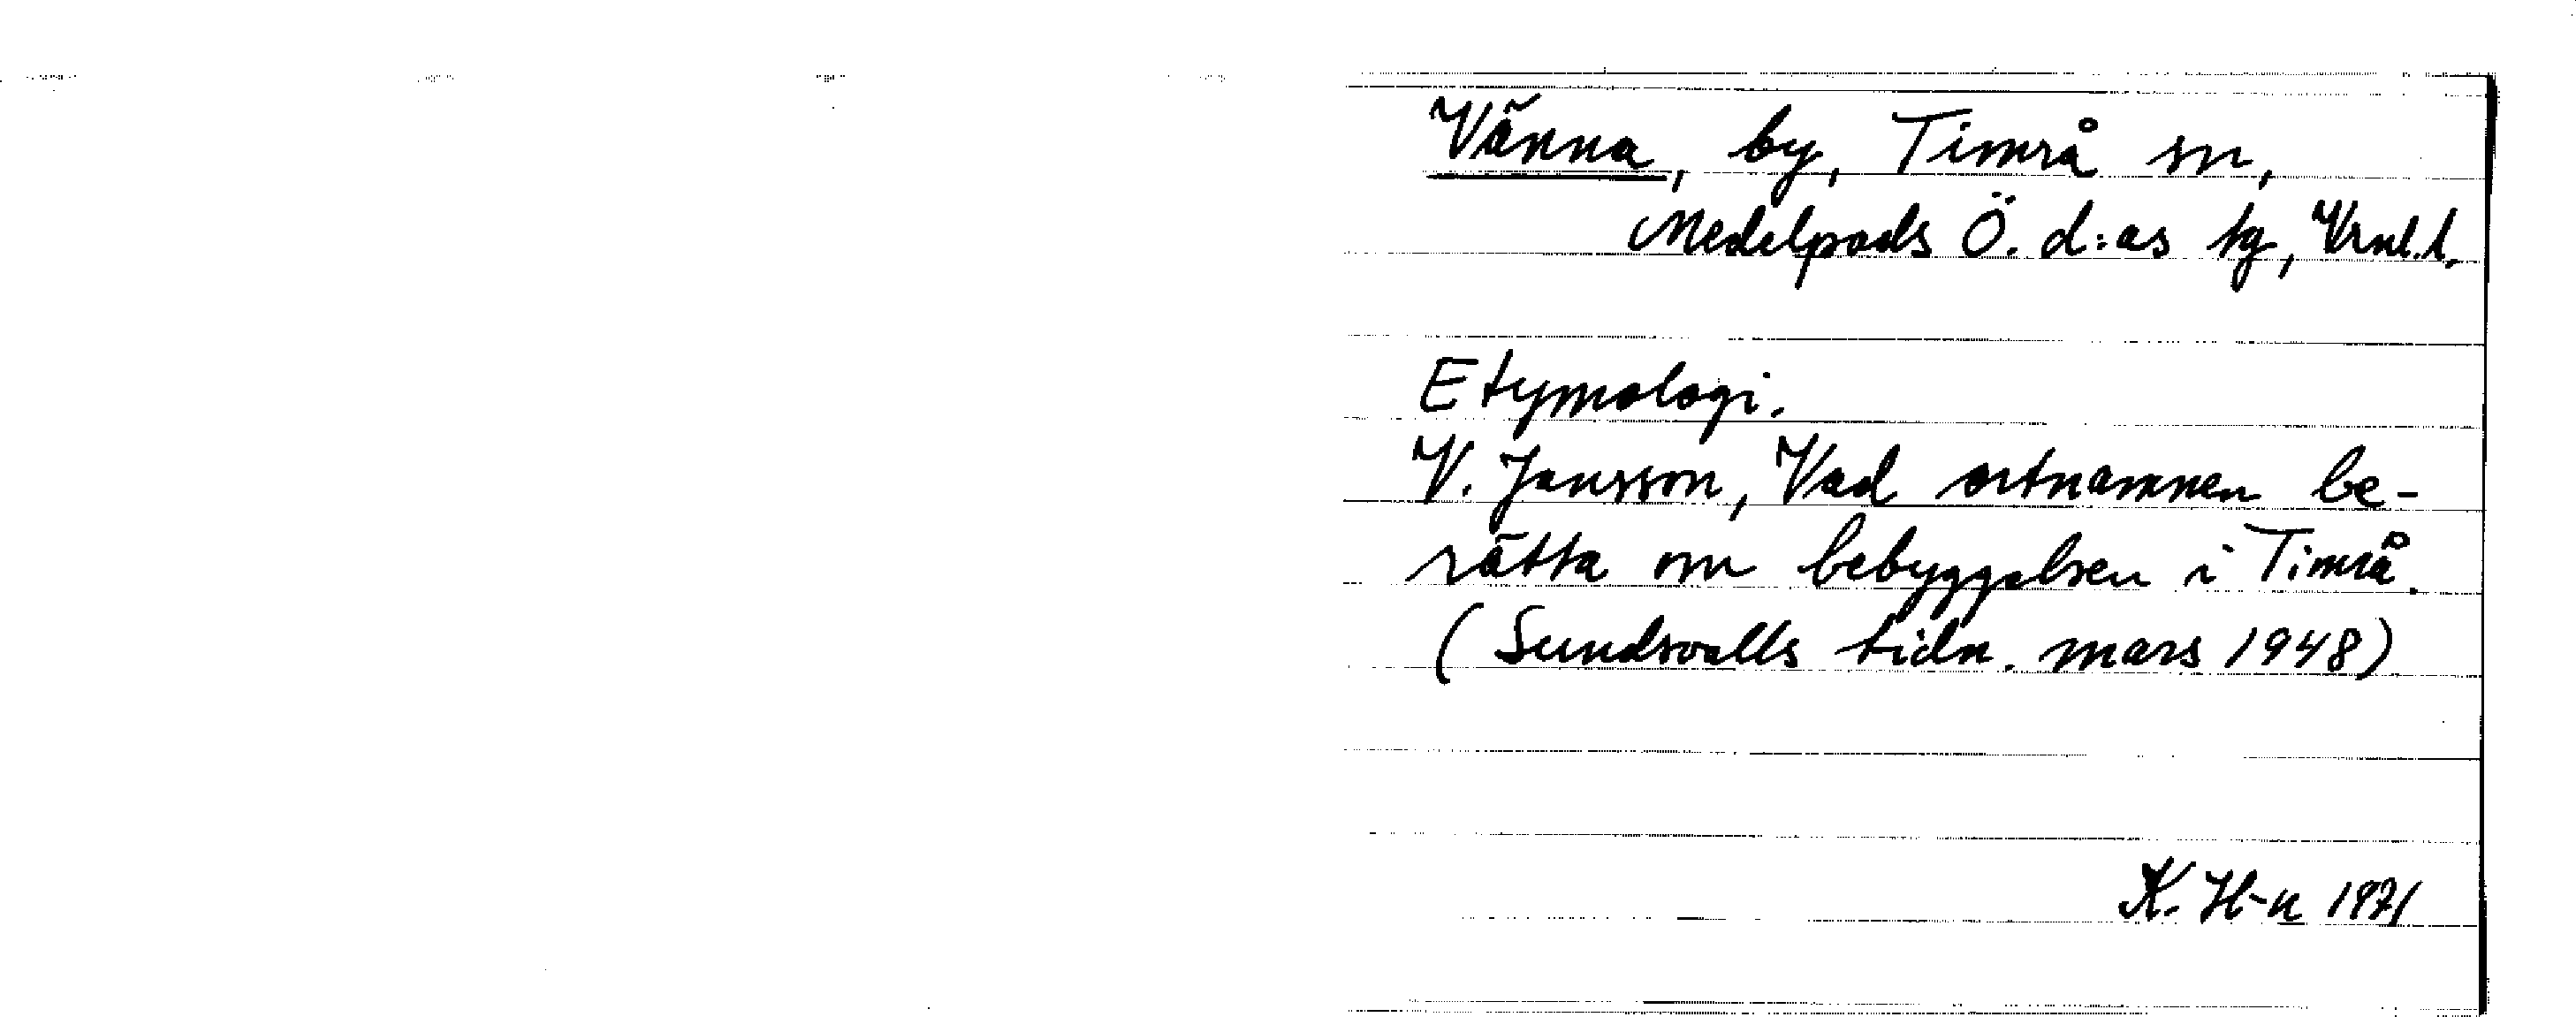 Vänna, by, Timrå sn,
Medelpads Ö. d:as tg, Vrnl. l.
Etymologi.
V. Jansson, Vad ortnamnen be-
rätta om bebyggelsen i Timrå.
(Sundsvalls tidn. mars 1948)
K. H-n 1971